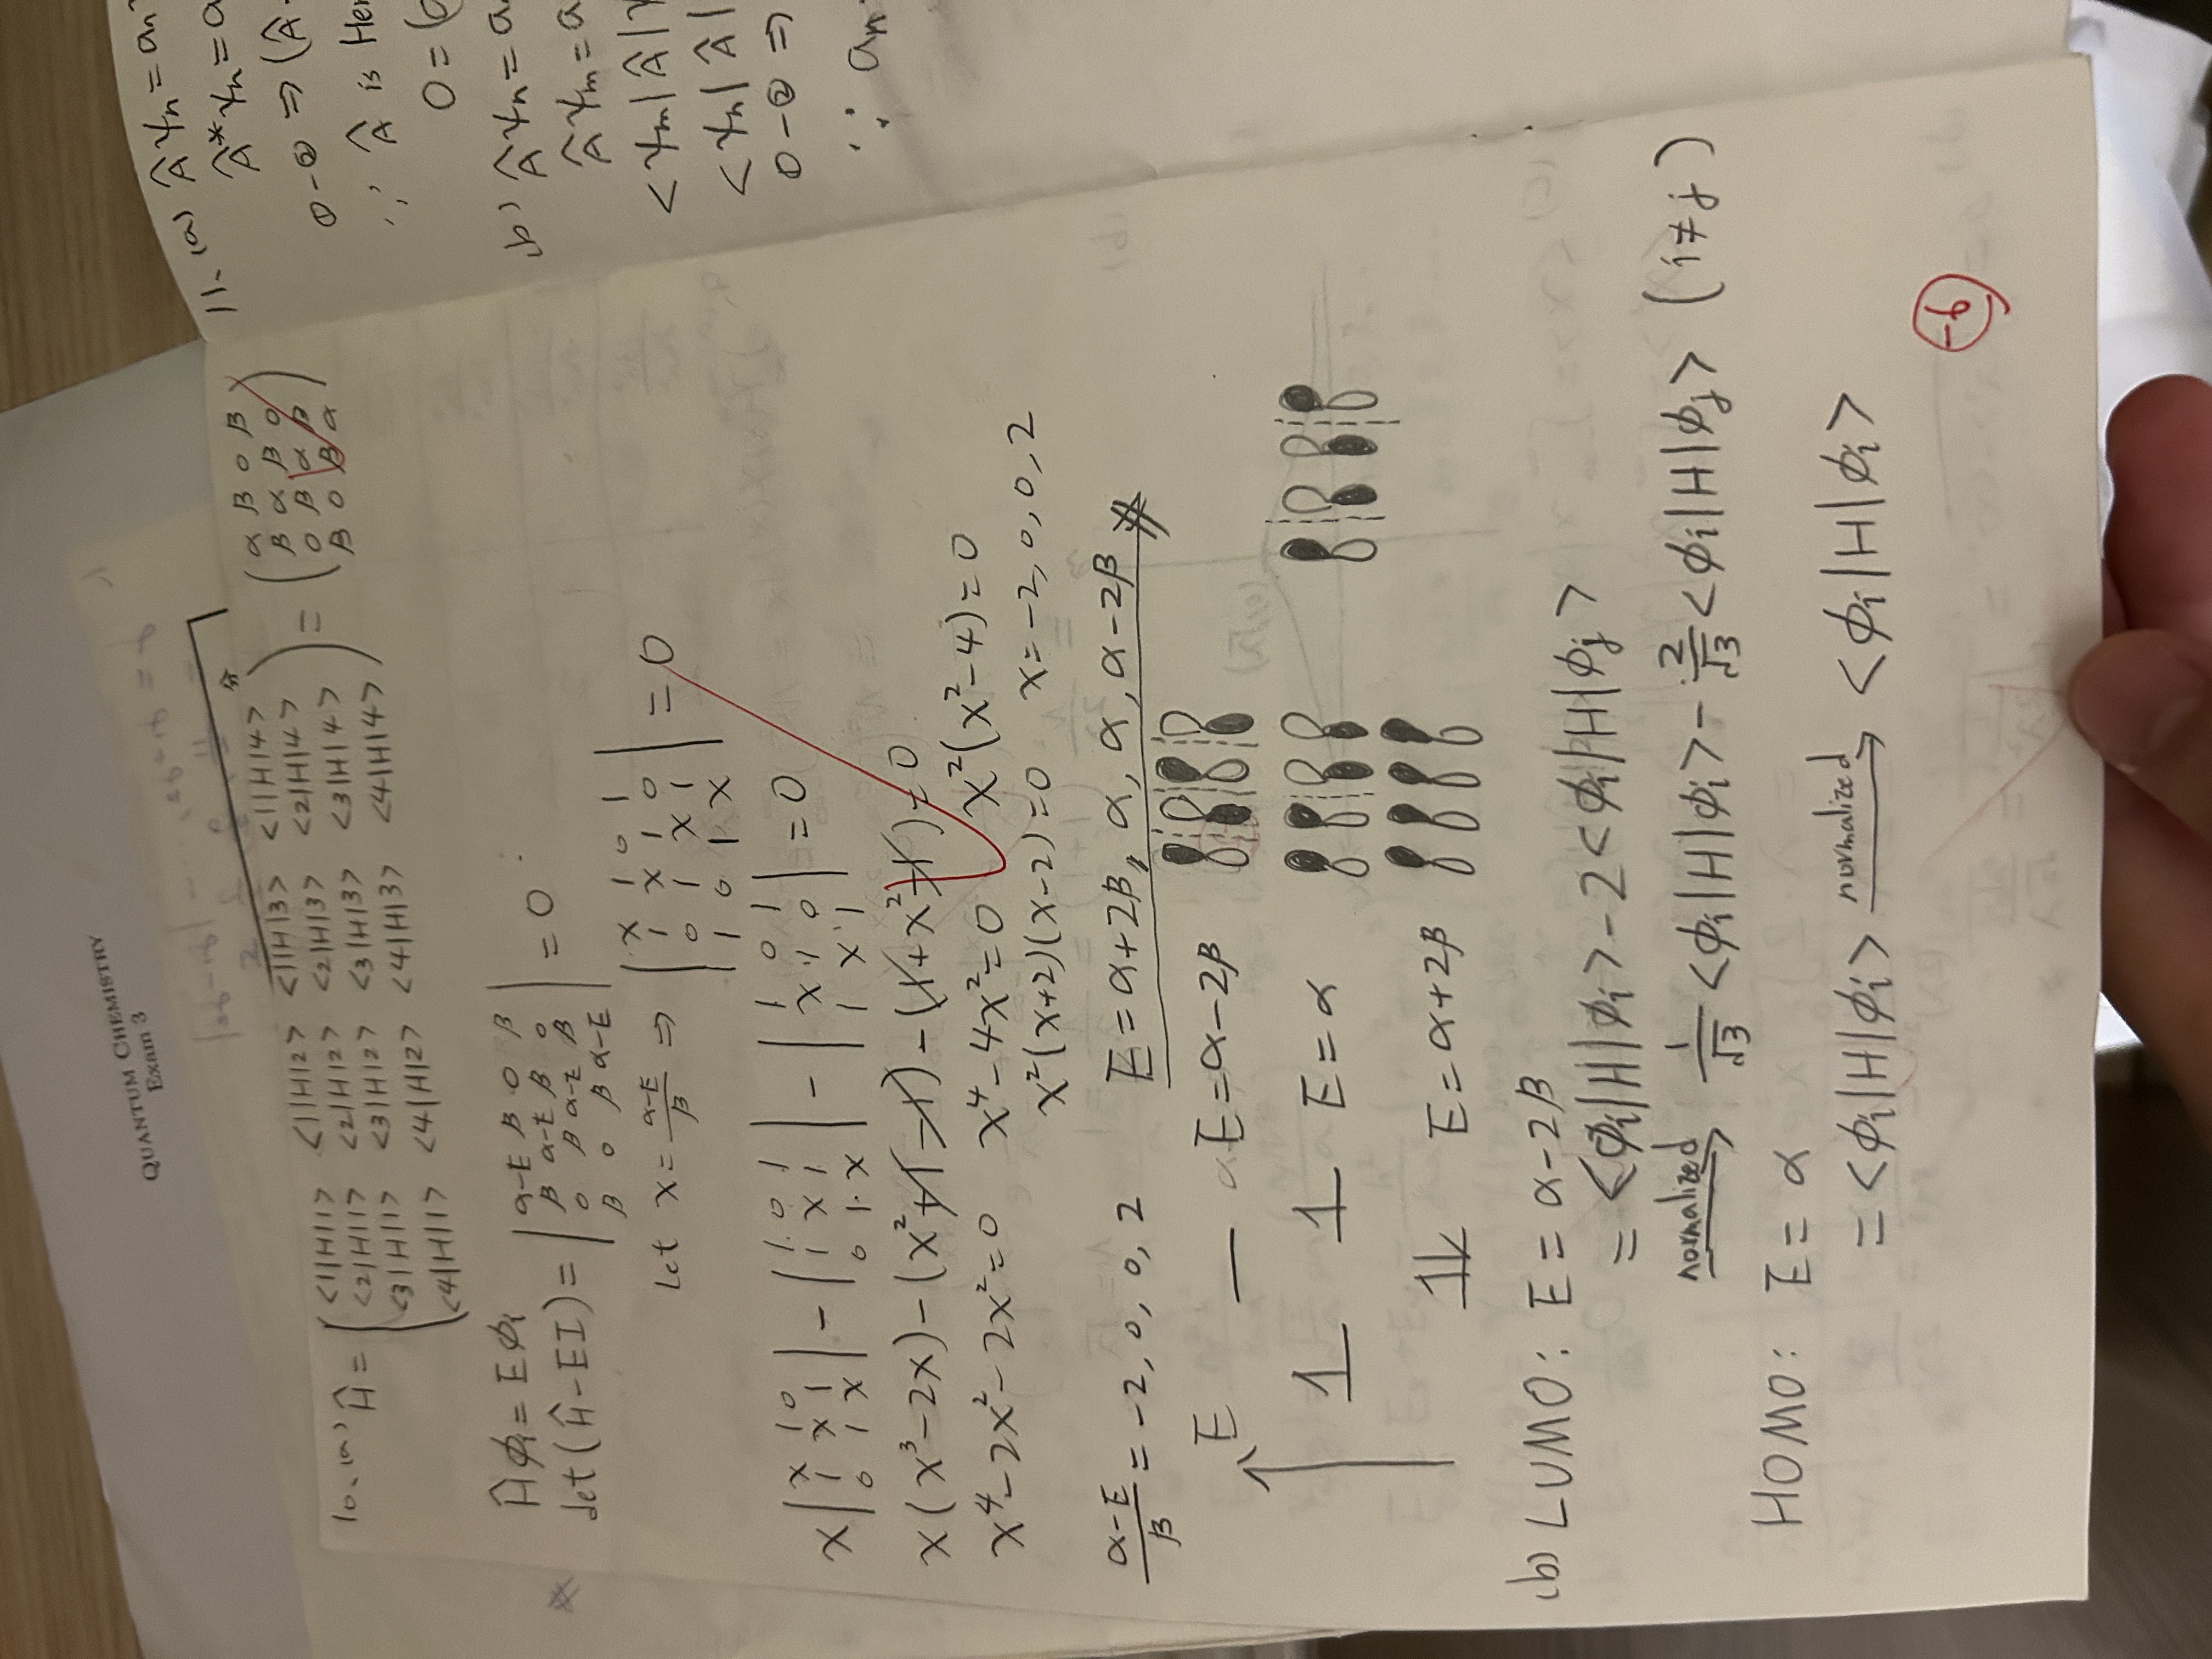 QUANTUM CHEMISTRY
Exam 3
10、(a) Ĥ = ( <1|H|1> <1|H|2> <1|H|3> <1|H|4> = ( α β 0 β
<2|H|1> <2|H|2> <2|H|3> <2|H|4> β α β 0
<3|H|1> <3|H|2> <3|H|3> <3|H|4> 0 β α β
<4|H|1> <4|H|2> <4|H|3> <4|H|4> ) β 0 β α )
Ĥφi = Eφi
det(Ĥ-EI) = | α-E β 0 β
β α-E β 0
0 β α-E β
β 0 β α-E | = 0
Let x = (α-E)/β ⇒ | x 1 0 1
1 x 1 0
0 1 x 1
1 0 1 x | = 0
x | x 1 0 | - | 1 0 1 | - | 1 0 1 | = 0
1 x 1 1 x 1 x 1 0
0 1 x 0 1 x 1 x 1
x(x³-2x) - (x²+1-1) - (1+x²-1) = 0
x⁴-2x²-2x²=0 x⁴-4x²=0 x²(x²-4)=0
x²(x+2)(x-2)=0 x=-2,0,0,2
(α-E)/β = -2, 0, 0, 2 E=α+2β, α, α, α-2β
E E=α-2β
E=α
E=α+2β
(b) LUMO: E = α-2β
= <φi|H|φi> - 2<φi|H|φj>
normalized → 1/√3 <φi|H|φi> - 2/√3 <φi|H|φj> (i≠j)
HOMO: E = α
= <φi|H|φi> normalized → <φi|H|φi>
-6
11、(a) Âψn = an
Â*ψn = a
①-② ⇒ (Â-
∵ Â is Her
0 = (a
(b) Âψn = a
Âψm = a
<ψm|Â|
<ψn|Â|
①-② ⇒
∵ an